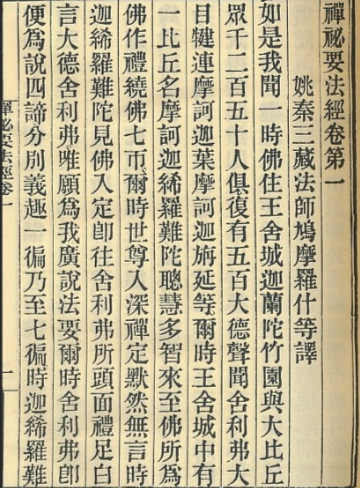 禪祕要法經卷第一
姚秦三藏法師鳩摩羅什等譯
如是我聞一時佛住王舍城迦蘭陀竹園與大比丘
眾千二百五十人俱復有五百大德聲聞舍利弗大
目犍連摩訶迦葉摩訶迦旃延等爾時王舍城中有
一比丘名摩訶迦絺羅難陀聰慧多智來至佛所為
佛作禮繞佛七帀爾時世尊入深禪定默然無言時
迦絺羅難陀見佛入定卽往舍利弗所頭面禮足白
言大德舍利弗唯願為我廣說法要爾時舍利弗卽
便為說四諦分別義趣一徧乃至七徧時迦絺羅難
禪祕要法經卷一
一